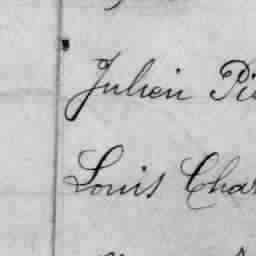 Julien Pi
Louis Cha